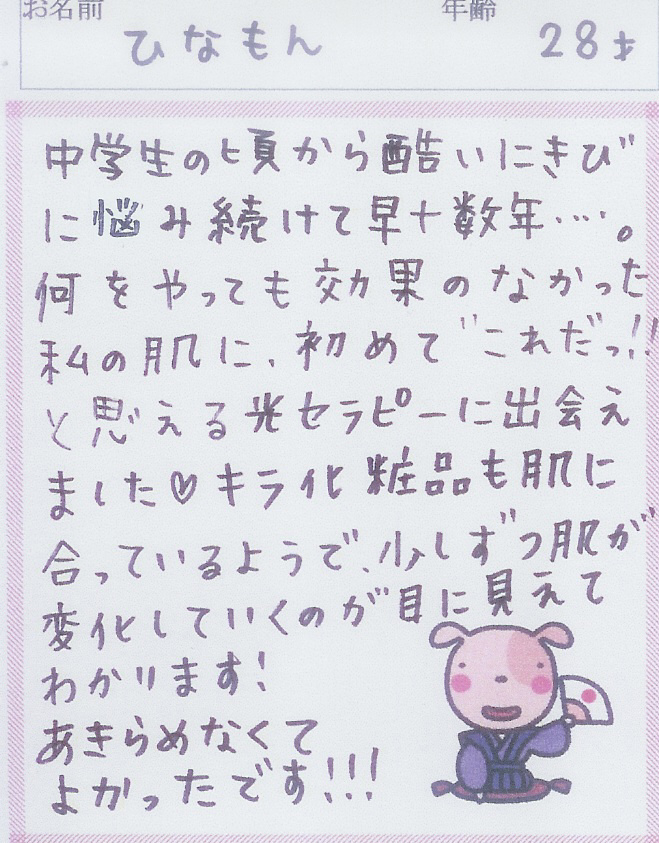 お名前 年齢
ひなもん 28才
中学生の頃から酷いにきび
に悩み続けて早十数年…。
何をやっても効果のなかった
私の肌に、初めて"これだっ!!
と思える光セラピーに出会え
ました♡キラ化粧品も肌に
合っているようで、少しずつ肌が
変化していくのが目に見えて
わかります!
あきらめなくて
よかったです!!!